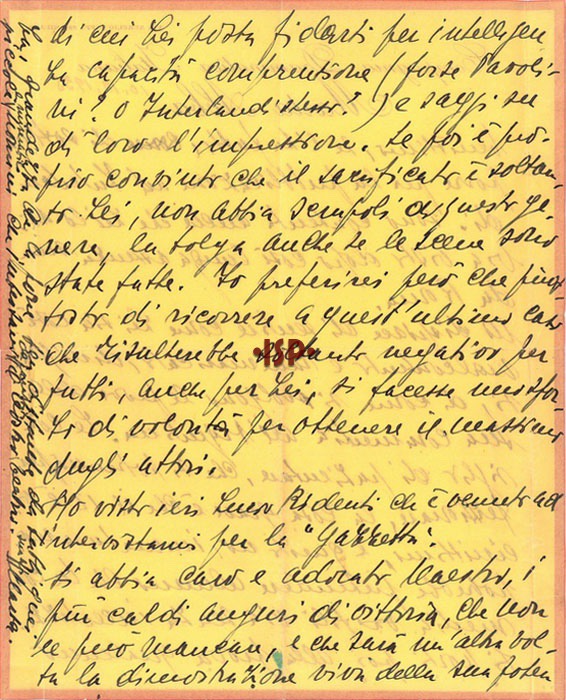 di cui Lei possa fidarsi per intelligen
za capacità comprensione (forse Pavoli-
ni? o Interlandi stesso?) e saggi su
di loro l'impressione. Se poi è pro-
prio convinto che il sacrificato è soltan-
to Lei, non abbia scrupoli di questo ge-
nere, la tolga anche se le scene sono
state fatte. Io preferirei però che piut-
tosto di ricorrere a quest'ultimo caso
che risulterebbe negativo per
tutti, anche per Lei, si facesse uno sfor-
zo di volontà per ottenere il massimo
dagli attori.
Ho visto ieri Lucio Ridenti che è venuto ad
intervistarmi per la "Gazzetta".
Si abbia caro e adorato Maestro, i
più caldi auguri di vittoria, che non
le può mancare, e che sarà un'altra vol-
ta la dimostrazione viva della sua poten
ISP
piccoli uomini